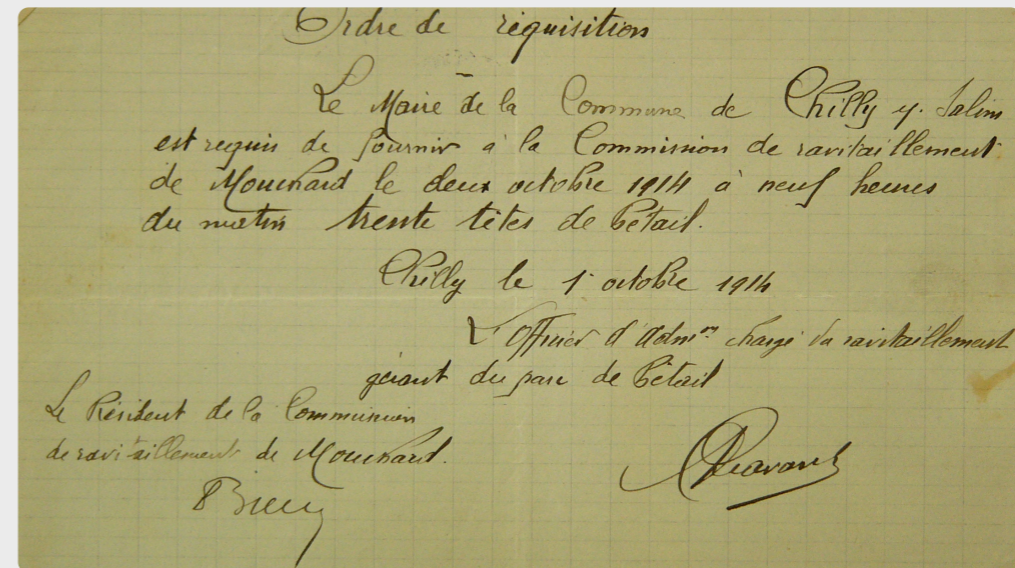 Ordre de réquisition
Le Maire de la Commune de Chilly s. Salins
est requis de fournir à la Commission de ravitaillement
de Mouchard le deux octobre 1914 à neuf heures
du matin trente têtes de bétail.
Chilly le 1 octobre 1914
L'officier d'Admon chargé du ravitaillement
gérant du parc de bétail
Le Président de la Commission
de ravitaillement de Mouchard.